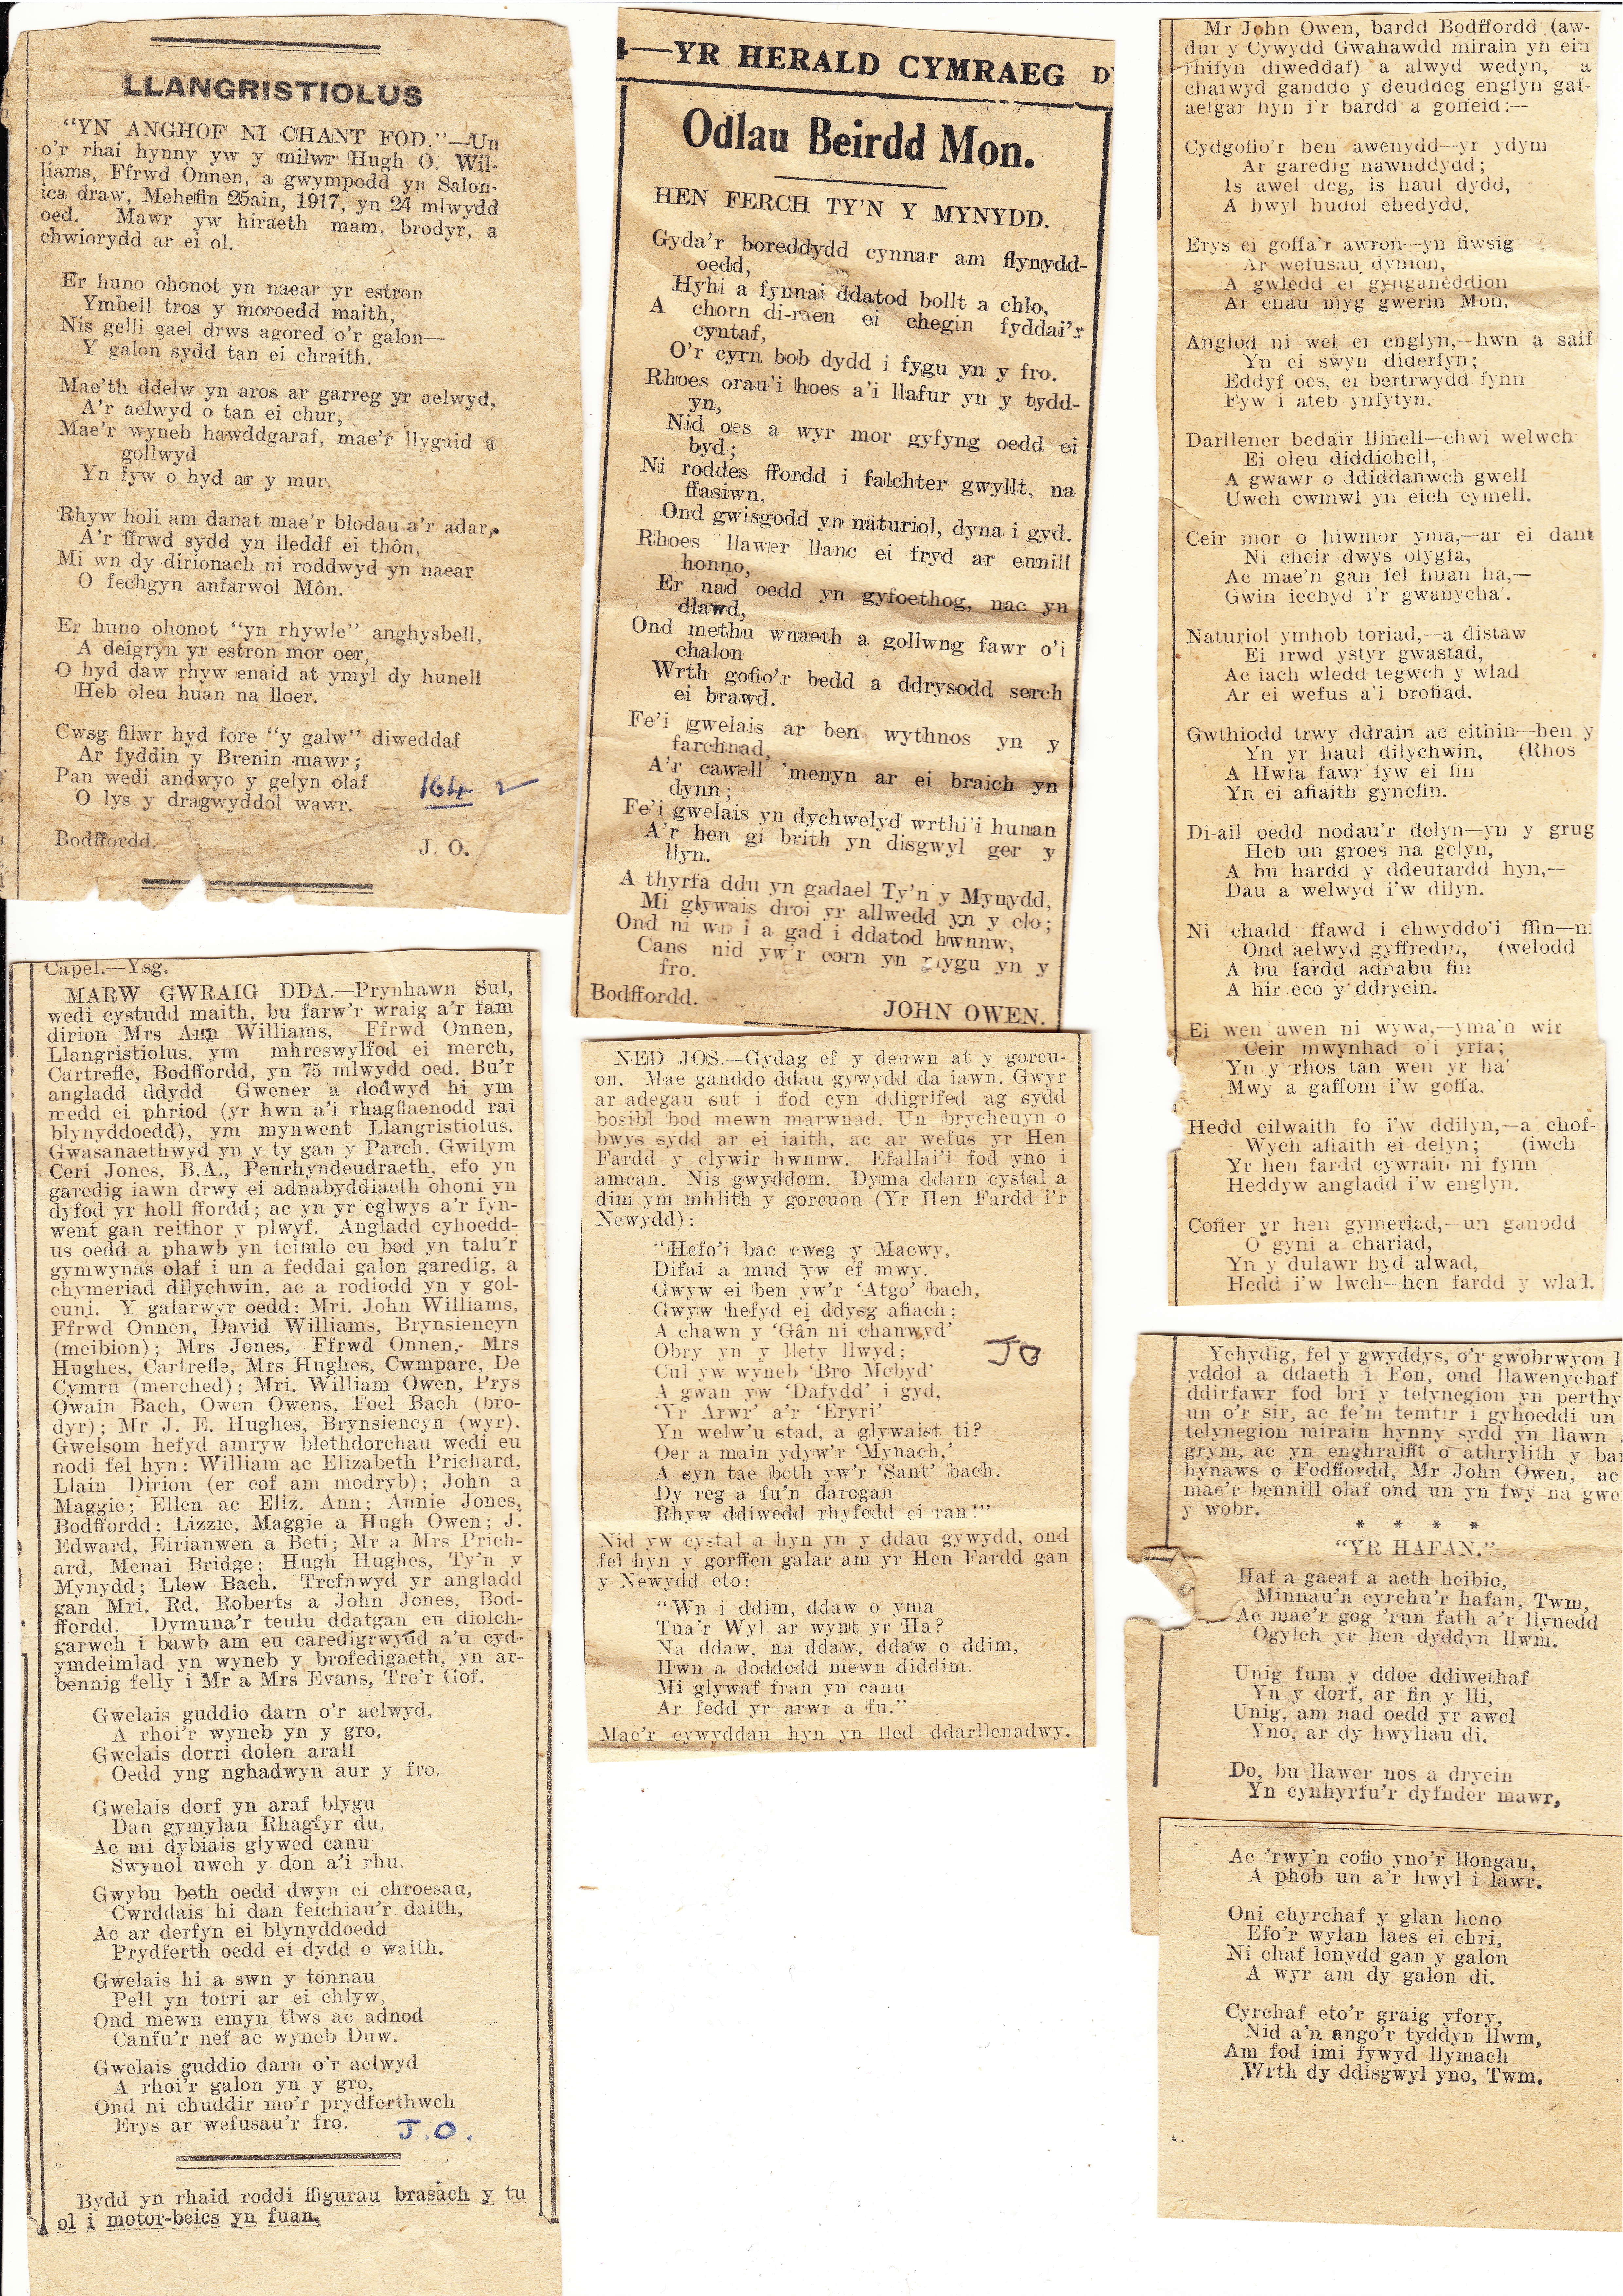 LLANGRISTIOLUS
"YN ANGHOF NI CHANT FOD."—Un
o'r rhai hynny yw y milwr Hugh O. Wil-
liams, Ffrwd Onnen, a gwympodd yn Salon-
ica draw, Mehefin 25ain, 1917, yn 24 mlwydd
oed. Mawr yw hiraeth mam, brodyr, a
chwiorydd ar ei ol.
Er huno ohonot yn naear yr estron
Ymheil tros y moroedd maith,
Nis gelli gael drws agored o'r galon—
Y galon sydd tan ei chraith.
Mae'th ddelw yn aros ar garreg yr aelwyd,
A'r aelwyd o tan ei chur,
Mae'r wyneb hawddgaraf, mae'r llygaid a
gollwyd
Yn fyw o hyd ar y mur.
Rhyw holi am danat mae'r blodau a'r adar,
A'r ffrwd sydd yn lleddf ei thôn,
Mi wn dy dirionach ni roddwyd yn naear
O fechgyn anfarwol Môn.
Er huno ohonot "yn rhywle" anghysbell,
A deigryn yr estron mor oer,
O hyd daw rhyw enaid at ymyl dy hunell
Heb oleu huan na lloer.
Cwsg filwr hyd fore "y galw" diweddaf
Ar fyddin y Brenin mawr;
Pan wedi andwyo y gelyn olaf
O lys y dragwyddol wawr.
164
Bodffordd. J. O.
Capel.—Ysg.
MARW GWRAIG DDA.—Prynhawn Sul,
wedi cystudd maith, bu farw'r wraig a'r fam
dirion Mrs Ann Williams, Ffrwd Onnen,
Llangristiolus, ym mhreswylfod ei merch,
Cartrefle, Bodffordd, yn 75 mlwydd oed. Bu'r
angladd ddydd Gwener a dodwyd hi ym
medd ei phriod (yr hwn a'i rhagflaenodd rai
blynyddoedd), ym mynwent Llangristiolus.
Gwasanaethwyd yn y ty gan y Parch. Gwilym
Ceri Jones, B.A., Penrhyndeudraeth, efo yn
garedig iawn drwy ei adnabyddiaeth ohoni yn
dyfod yr holl ffordd; ac yn yr eglwys a'r fyn-
went gan reithor y plwyf. Angladd cyhoedd-
us oedd a phawb yn teimlo eu bod yn talu'r
gymwynas olaf i un a feddai galon garedig, a
chymeriad dilychwin, ac a rodiodd yn y gol-
euni. Y galarwyr oedd: Mri. John Williams,
Ffrwd Onnen, David Williams, Brynsiencyn
(meibion); Mrs Jones, Ffrwd Onnen, Mrs
Hughes, Cartrefle, Mrs Hughes, Cwmparc, De
Cymru (merched); Mri. William Owen, Prys
Owain Bach, Owen Owens, Foel Bach (bro-
dyr); Mr J. E. Hughes, Brynsiencyn (wyr).
Gwelsom hefyd amryw blethdorchau wedi eu
nodi fel hyn: William ac Elizabeth Prichard,
Llain Dirion (er cof am modryb); John a
Maggie; Ellen ac Eliz. Ann; Annie Jones,
Bodffordd; Lizzie, Maggie a Hugh Owen; J.
Edward, Eirianwen a Beti; Mr a Mrs Prich-
ard, Menai Bridge; Hugh Hughes, Ty'n y
Mynydd; Llew Bach. Trefnwyd yr angladd
gan Mri. Rd. Roberts a John Jones, Bod-
ffordd. Dymuna'r teulu ddatgan eu diolch-
garwch i bawb am eu caredigrwydd a'u cyd-
ymdeimlad yn wyneb y brofedigaeth, yn ar-
bennig felly i Mr a Mrs Evans, Tre'r Gof.
Gwelais guddio darn o'r aelwyd,
A rhoi'r wyneb yn y gro,
Gwelais dorri dolen arall
Oedd yng nghadwyn aur y fro.
Gwelais dorf yn araf blygu
Dan gymylau Rhagfyr du,
Ac mi dybiais glywed canu
Swynol uwch y don a'i rhu.
Gwybu beth oedd dwyn ei chroesau,
Cwrddais hi dan feichiau'r daith,
Ac ar derfyn ei blynyddoedd
Prydferth oedd ei dydd o waith.
Gwelais hi a swn y tonnau
Pell yn torri ar ei chlyw,
Ond mewn emyn tlws ac adnod
Canfu'r nef ac wyneb Duw.
Gwelais guddio darn o'r aelwyd
A rhoi'r galon yn y gro,
Ond ni chuddir mo'r prydferthwch
Erys ar wefusau'r fro.
J. O.
Bydd yn rhaid roddi ffigurau brasach y tu
ol i motor-beics yn fuan.
4—YR HERALD CYMRAEG D
Odlau Beirdd Mon.
HEN FERCH TY'N Y MYNYDD.
Gyda'r boreddydd cynnar am flynydd-
oedd,
Hyhi a fynnai ddatod bollt a chlo,
A chorn di-raen ei chegin fyddai'r
cyntaf,
O'r cyrn bob dydd i fygu yn y fro.
Rhoes orau'i hoes a'i llafur yn y tydd-
yn,
Nid oes a wyr mor gyfyng oedd ei
byd;
Ni roddes ffordd i falchter gwyllt, na
ffasiwn,
Ond gwisgodd yn naturiol, dyna i gyd.
Rhoes llawer llanc ei fryd ar ennill
honno,
Er nad oedd yn gyfoethog, nac yn
dlawd,
Ond methu wnaeth a gollwng fawr o'i
chalon
Wrth gofio'r bedd a ddrysodd serch
ei brawd.
Fe'i gwelais ar ben wythnos yn y
farchnad,
A'r cawell 'menyn ar ei braich yn
dynn;
Fe'i gwelais yn dychwelyd wrthi'i hunan
A'r hen gi brith yn disgwyl ger y
llyn.
A thyrfa ddu yn gadael Ty'n y Mynydd,
Mi glywais droi yr allwedd yn y clo;
Ond ni wn i a gad i ddatod hwnnw,
Cans nid yw'r corn yn mygu yn y
fro.
Bodffordd. JOHN OWEN.
NED JOS.—Gydag ef y deuwn at y goreu-
on. Mae ganddo ddau gywydd da iawn. Gwyr
ar adegau sut i fod cyn ddigrifed ag sydd
bosibl bod mewn marwnad. Un brycheuyn o
bwys sydd ar ei iaith, ac ar wefus yr Hen
Fardd y clywir hwnnw. Efallai'i fod yno i
amcan. Nis gwyddom. Dyma ddarn cystal a
dim ym mhlith y goreuon (Yr Hen Fardd i'r
Newydd):
"Hefo'i bac cwsg y Macwy,
Difai a mud yw ef mwy.
Gwyw ei ben yw'r 'Atgo' bach,
Gwyw hefyd ei ddysg afiach;
A chawn y 'Gân ni chanwyd'
Obry yn y llety llwyd;
Cul yw wyneb 'Bro Mebyd'
A gwan yw 'Dafydd' i gyd,
'Yr Arwr' a'r 'Eryri'
Yn welw'u stad, a glywaist ti?
Oer a main ydyw'r 'Mynach,'
A syn tae beth yw'r 'Sant' bach.
Dy reg a fu'n darogan
Rhyw ddiwedd rhyfedd ei ran!"
JO
Nid yw cystal a hyn yn y ddau gywydd, ond
fel hyn y gorffen galar am yr Hen Fardd gan
y Newydd eto:
"Wn i ddim, ddaw o yma
Tua'r Wyl ar wynt yr Ha?
Na ddaw, na ddaw, ddaw o ddim,
Hwn a doddodd mewn diddim.
Mi glywaf fran yn canu
Ar fedd yr arwr a fu."
Mae'r cywyddau hyn yn lled ddarllenadwy.
Mr John Owen, bardd Bodffordd (aw-
dur y Cywydd Gwahawdd mirain yn ein
rhifyn diweddaf) a alwyd wedyn, a
chafwyd ganddo y deuddeg englyn gaf-
aelgar hyn i'r bardd a gofieid:—
Cydgofio'r hen awenydd—yr ydym
Ar garedig nawnddydd;
Is awel deg, is haul dydd,
A hwyl hudol ehedydd.
Erys ei goffa'r awron—yn fiwsig
Ar wefusau dynion,
A gwledd ei gynganeddion
Ar enau myg gwerin Mon.
Anglod ni wel ei englyn,—hwn a saif
Yn ei swyn diderfyn;
Eddyf oes, ei bertrwydd fynn
Fyw i ateb ynfytyn.
Darllener bedair llinell—chwi welwch
Ei oleu diddichell,
A gwawr o ddiddanwch gwell
Uwch cwmwl yn eich cymell.
Ceir mor o hiwmor yma,—ar ei dant
Ni cheir dwys olygfa,
Ac mae'n gan fel huan ha,—
Gwin iechyd i'r gwanycha'.
Naturiol ymhob toriad,—a distaw
Ei ffrwd ystyr gwastad,
Ac iach wledd tegwch y wlad
Ar ei wefus a'i brofiad.
Gwthiodd trwy ddrain ac eithin—hen y
Yn yr haul dilychwin, (Rhos
A Hwfa fawr fyw ei fin
Yn ei afiaith gynefin.
Di-ail oedd nodau'r delyn—yn y grug
Heb un groes na gelyn,
A bu hardd y ddeufardd hyn,—
Dau a welwyd i'w dilyn.
Ni chadd ffawd i chwyddo'i ffin—ni
Ond aelwyd gyffredin, (welodd
A bu fardd adnabu fin
A hir eco y ddrycin.
Ei wen awen ni wywa,—yma'n wir
Ceir mwynhad o'i yrfa;
Yn y rhos tan wen yr ha'
Mwy a gaffom i'w goffa.
Hedd eilwaith fo i'w ddilyn,—a chof-
Wych afiaith ei delyn; (iwch
Yr hen fardd cywrain ni fynn
Heddyw angladd i'w englyn.
Cofier yr hen gymeriad,—un ganodd
O gyni a chariad,
Yn y dulawr hyd alwad,
Hedd i'w lwch—hen fardd y wlad.
Ychydig, fel y gwyddys, o'r gwobrwyon l
yddol a ddaeth i Fon, ond llawenychaf
ddirfawr fod bri y telynegion yn perthy
un o'r sir, ac fe'm temtir i gyhoeddi un
telynegion mirain hynny sydd yn llawn
grym, ac yn enghraifft o athrylith y bar
hynaws o Fodffordd, Mr John Owen, ac
mae'r bennill olaf ond un yn fwy na gwe
y wobr.
* * * *
"YR HAFAN."
Haf a gaeaf a aeth heibio,
Minnau'n cyrchu'r hafan, Twm,
Ac mae'r gog 'run fath a'r llynedd
Ogylch yr hen dyddyn llwm.
Unig fum y ddoe ddiwethaf
Yn y dorf, ar fin y lli,
Unig, am nad oedd yr awel
Yno, ar dy hwyliau di.
Do, bu llawer nos a drycin
Yn cynhyrfu'r dyfnder mawr,
Ac 'rwy'n cofio yno'r llongau,
A phob un a'r hwyl i lawr.
Oni chyrchaf y glan heno
Efo'r wylan laes ei chri,
Ni chaf lonydd gan y galon
A wyr am dy galon di.
Cyrchaf eto'r graig yfory,
Nid a'n ango'r tyddyn llwm,
Am fod imi fywyd llymach
Wrth dy ddisgwyl yno, Twm.